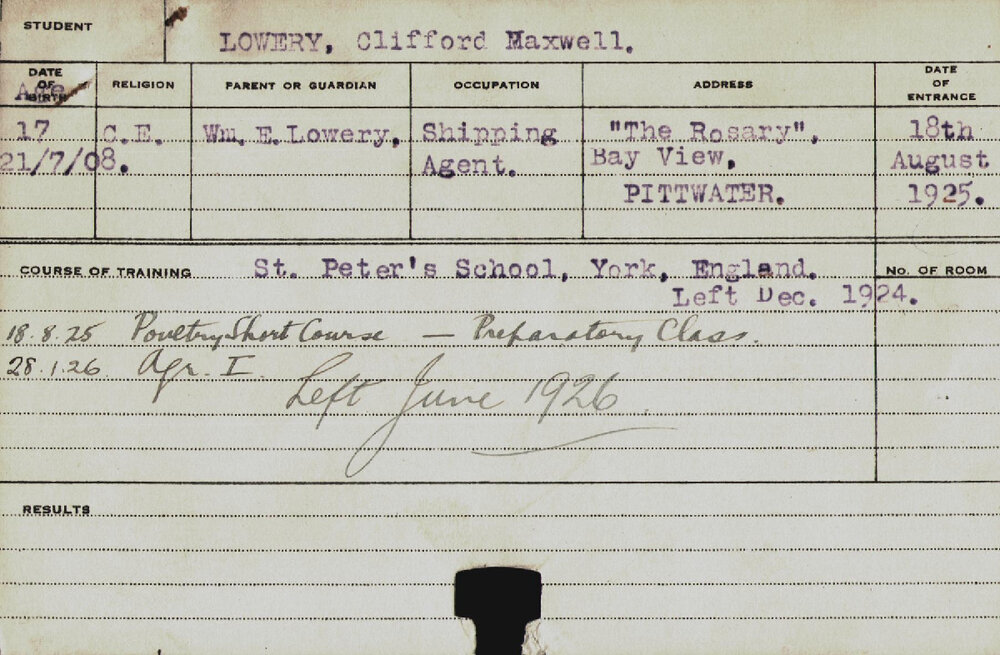 STUDENT
LOWERY, Clifford Maxwell.
DATE OF BIRTH Age RELIGION PARENT OR GUARDIAN OCCUPATION ADDRESS DATE OF ENTRANCE
17 C.E. Wm. E. Lowery, Shipping "The Rosary", 18th
21/7/08. Agent. Bay View, August
PITTWATER. 1925.
COURSE OF TRAINING St. Peter's School, York, England. No. OF ROOM
Left Dec. 1924.
18.8.25 Poultry Short Course — Preparatory Class.
28.1.26 Agr. I.
Left June 1926.
RESULTS